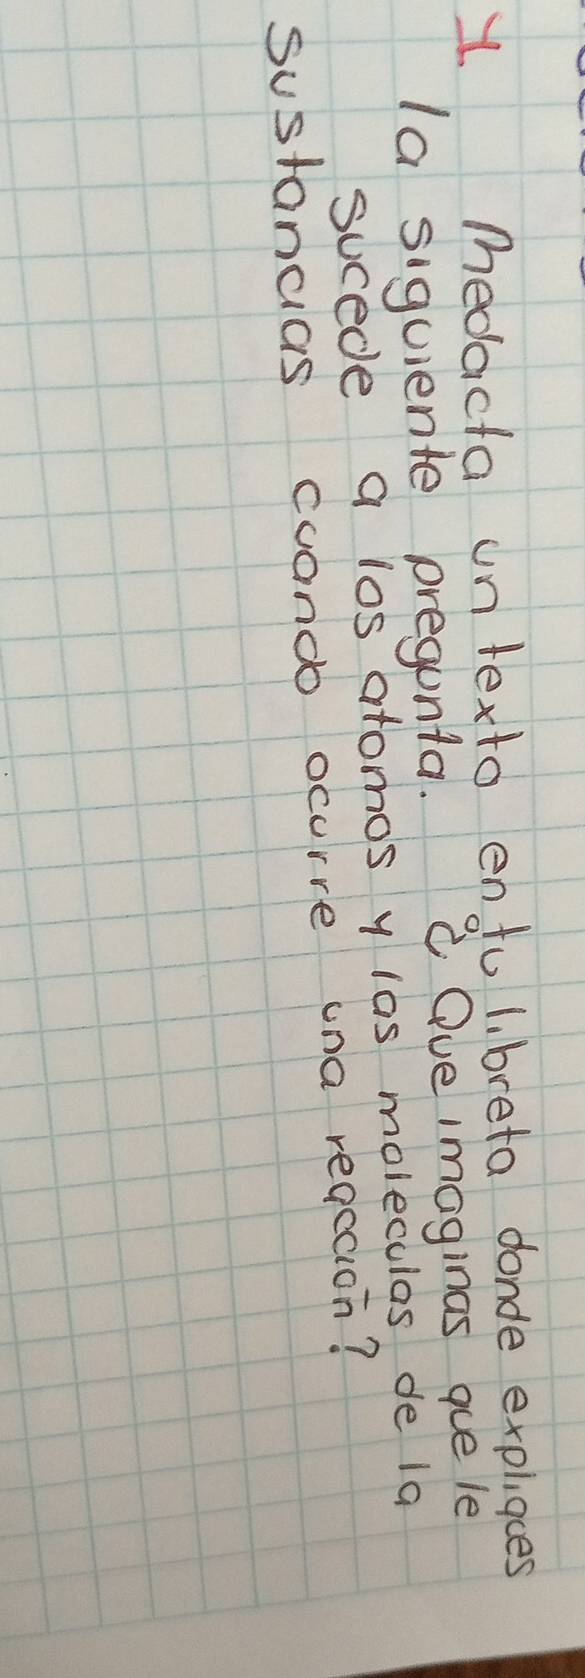 1 Redacta un texto en tu libreta donde expliques
la siguiente pregunta. ¿Que imaginas que le
sucede a los atomos y las moleculas de la
sustancias cuando ocurre una reacción?